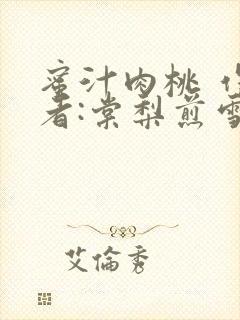 蜜汁肉桃 作
者:棠梨煎雪
艾倫秀